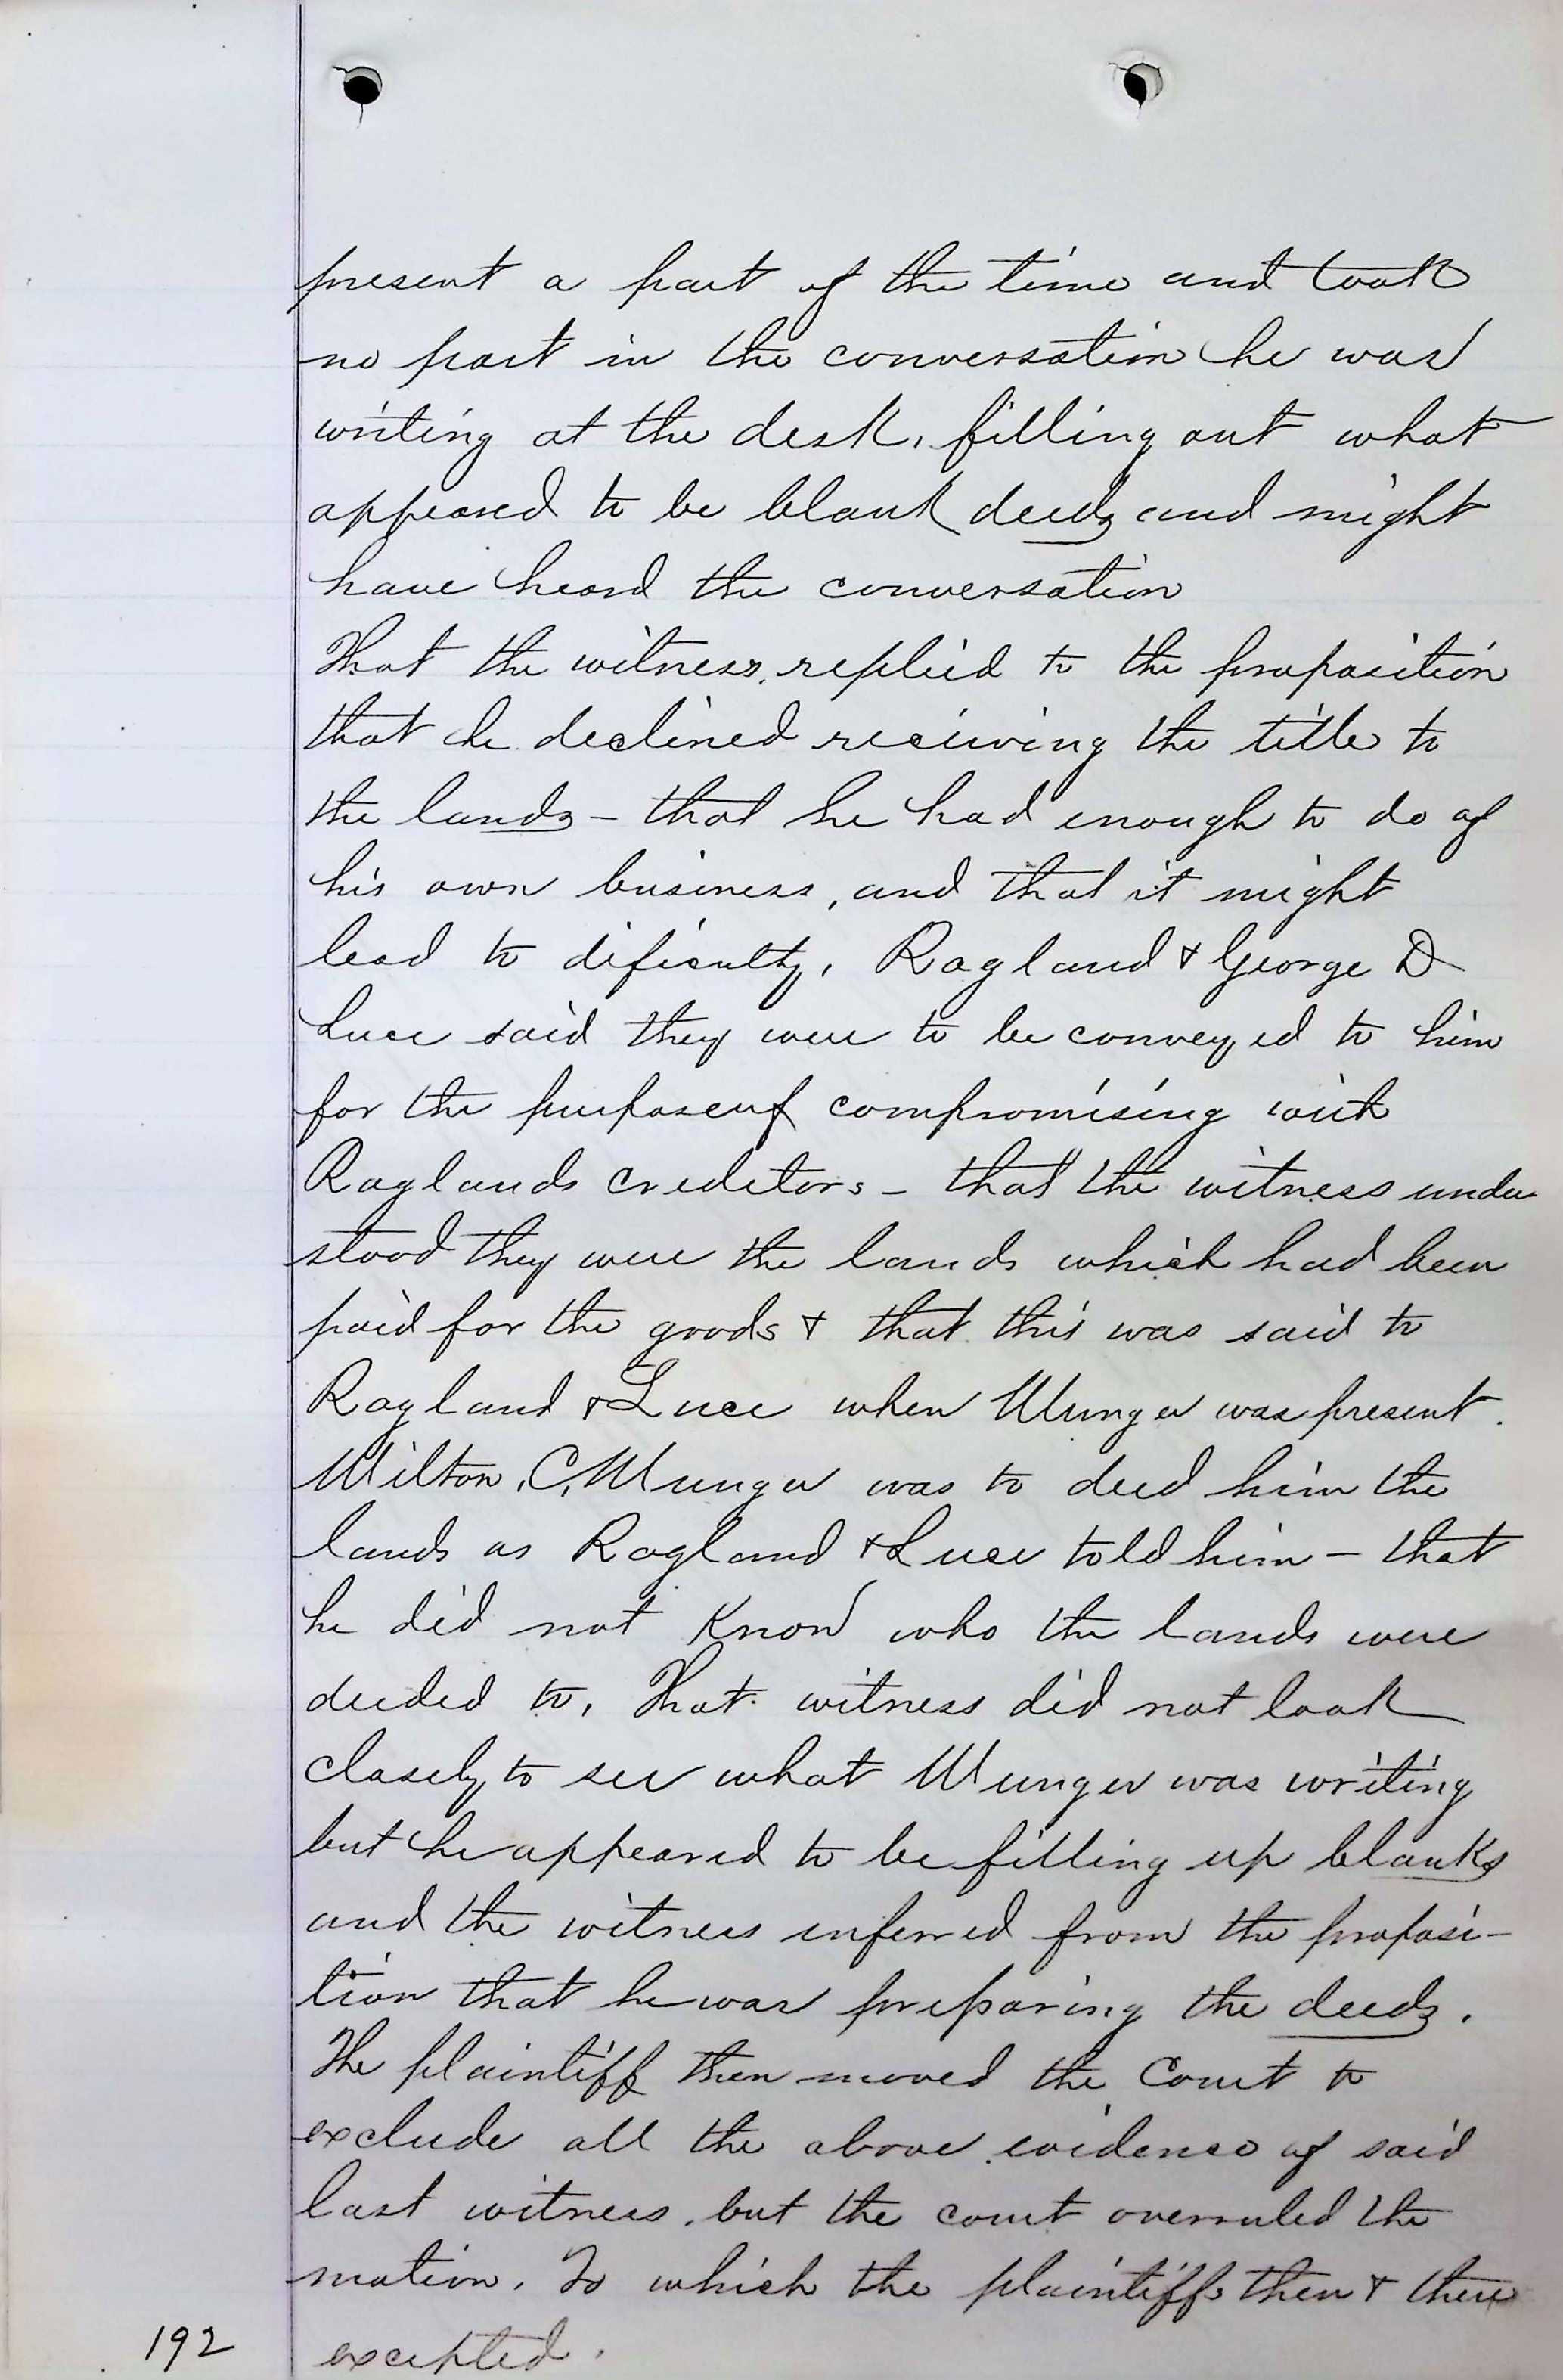 present a part of the time and took
no part in the conversation he was
writing at the desk, filling out what
appeared to be blank deeds and might
have heard the conversation
That the witness, replied to the proposition
that he declined receiving the title to
the lands – that he had enough to do of
his own business, and that it might
lead to dificulty, Ragland & George D
Luce said they were to be conveyed to him
for the purpose of compromising with
Raglands creditors – that the witness under
stood they were the lands which had been
paid for the goods & that this was said to
Ragland & Luce when Munger was present.
Milton, C, Munger was to deed him the
lands as Ragland & Luce told him – that
he did not know who the lands were
deeded to, That witness did not look
closely to see what Munger was writing
but he appeared to be filling up blanks
and the witness inferred from the proposi-
tion that he was preparing the deeds.
The plaintiff then moved the Court to
exclude all the above evidence of said
last witness, but the court overruled the
motion, To which the plaintiffs then & there
excepted.
192